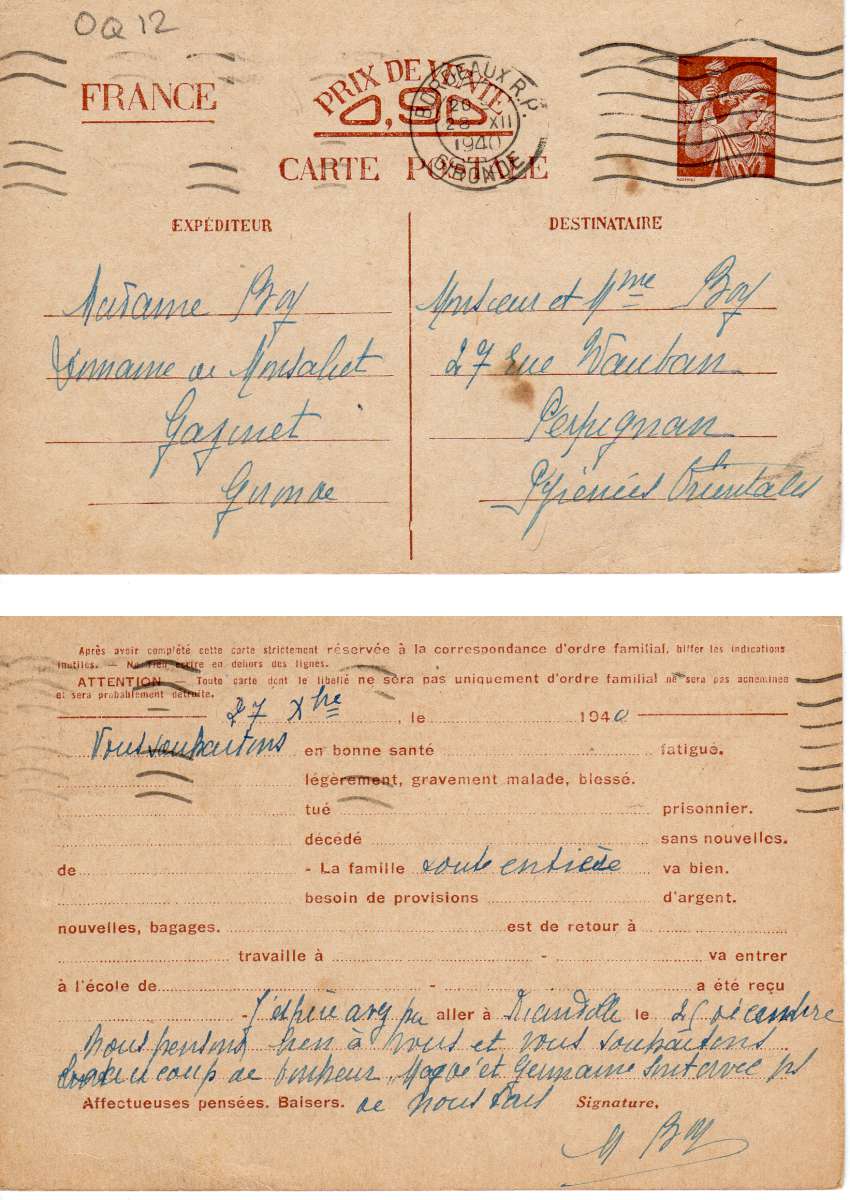 OQ 12
FRANCE
PRIX DE VENTE
0,90
CARTE POSTALE
BORDEAUX R.P.
20
28 XII
1940
GIRONDE
EXPÉDITEUR
Madame Boy
Domaine de Monsalut
Gazinet
Gironde
DESTINATAIRE
Monsieur et Mme Boy
27 rue Vauban
Perpignan
Pyrénées Orientales
Après avoir complété cette carte strictement réservée à la correspondance d'ordre familial, biffer les indications
inutiles. — Ne rien écrire en dehors des lignes.
ATTENTION Toute carte dont le libellé ne sera pas uniquement d'ordre familial ne sera pas acheminée
et sera probablement détruite.
27 Xbre, le 1940
Vous souhaitons en bonne santé fatigué.
légèrement, gravement malade, blessé.
tué prisonnier.
décédé sans nouvelles.
de - La famille toute entière va bien.
besoin de provisions d'argent.
nouvelles, bagages. est de retour à
travaille à - va entrer
à l'école de - a été reçu
- J'espère avez pu aller à le 25 décembre
Nous pensons bien à vous et vous souhaitons
beaucoup de bonheur et Germaine sont avec
Affectueuses pensées. Baisers. de nous tous Signature.
M Boy